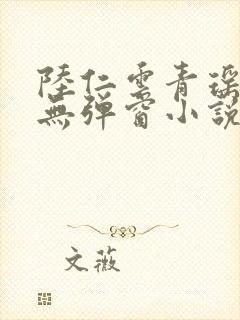 陸仁雲青瑶
無彈窗小說
文薇